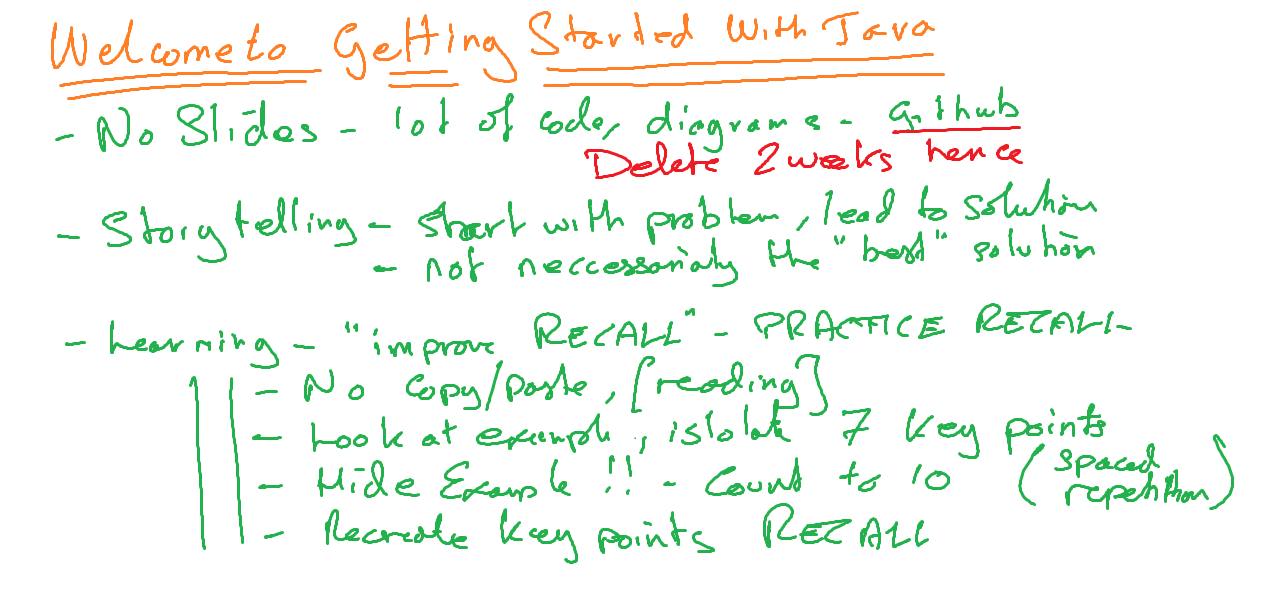 Welcome to Getting Started With Java
- No Slides - lot of code, diagrams - github
Delete 2 weeks hence
- Storytelling - start with problem, lead to solution
- not neccessarialy the "best" solution
- Learning - "improve RECALL" - PRACTICE RECALL
- No copy/paste, [reading]
- Look at example, islolate 7 key points
- Hide Example !! - Count to 10 (spaced repetition)
- Recreate key points RECALL